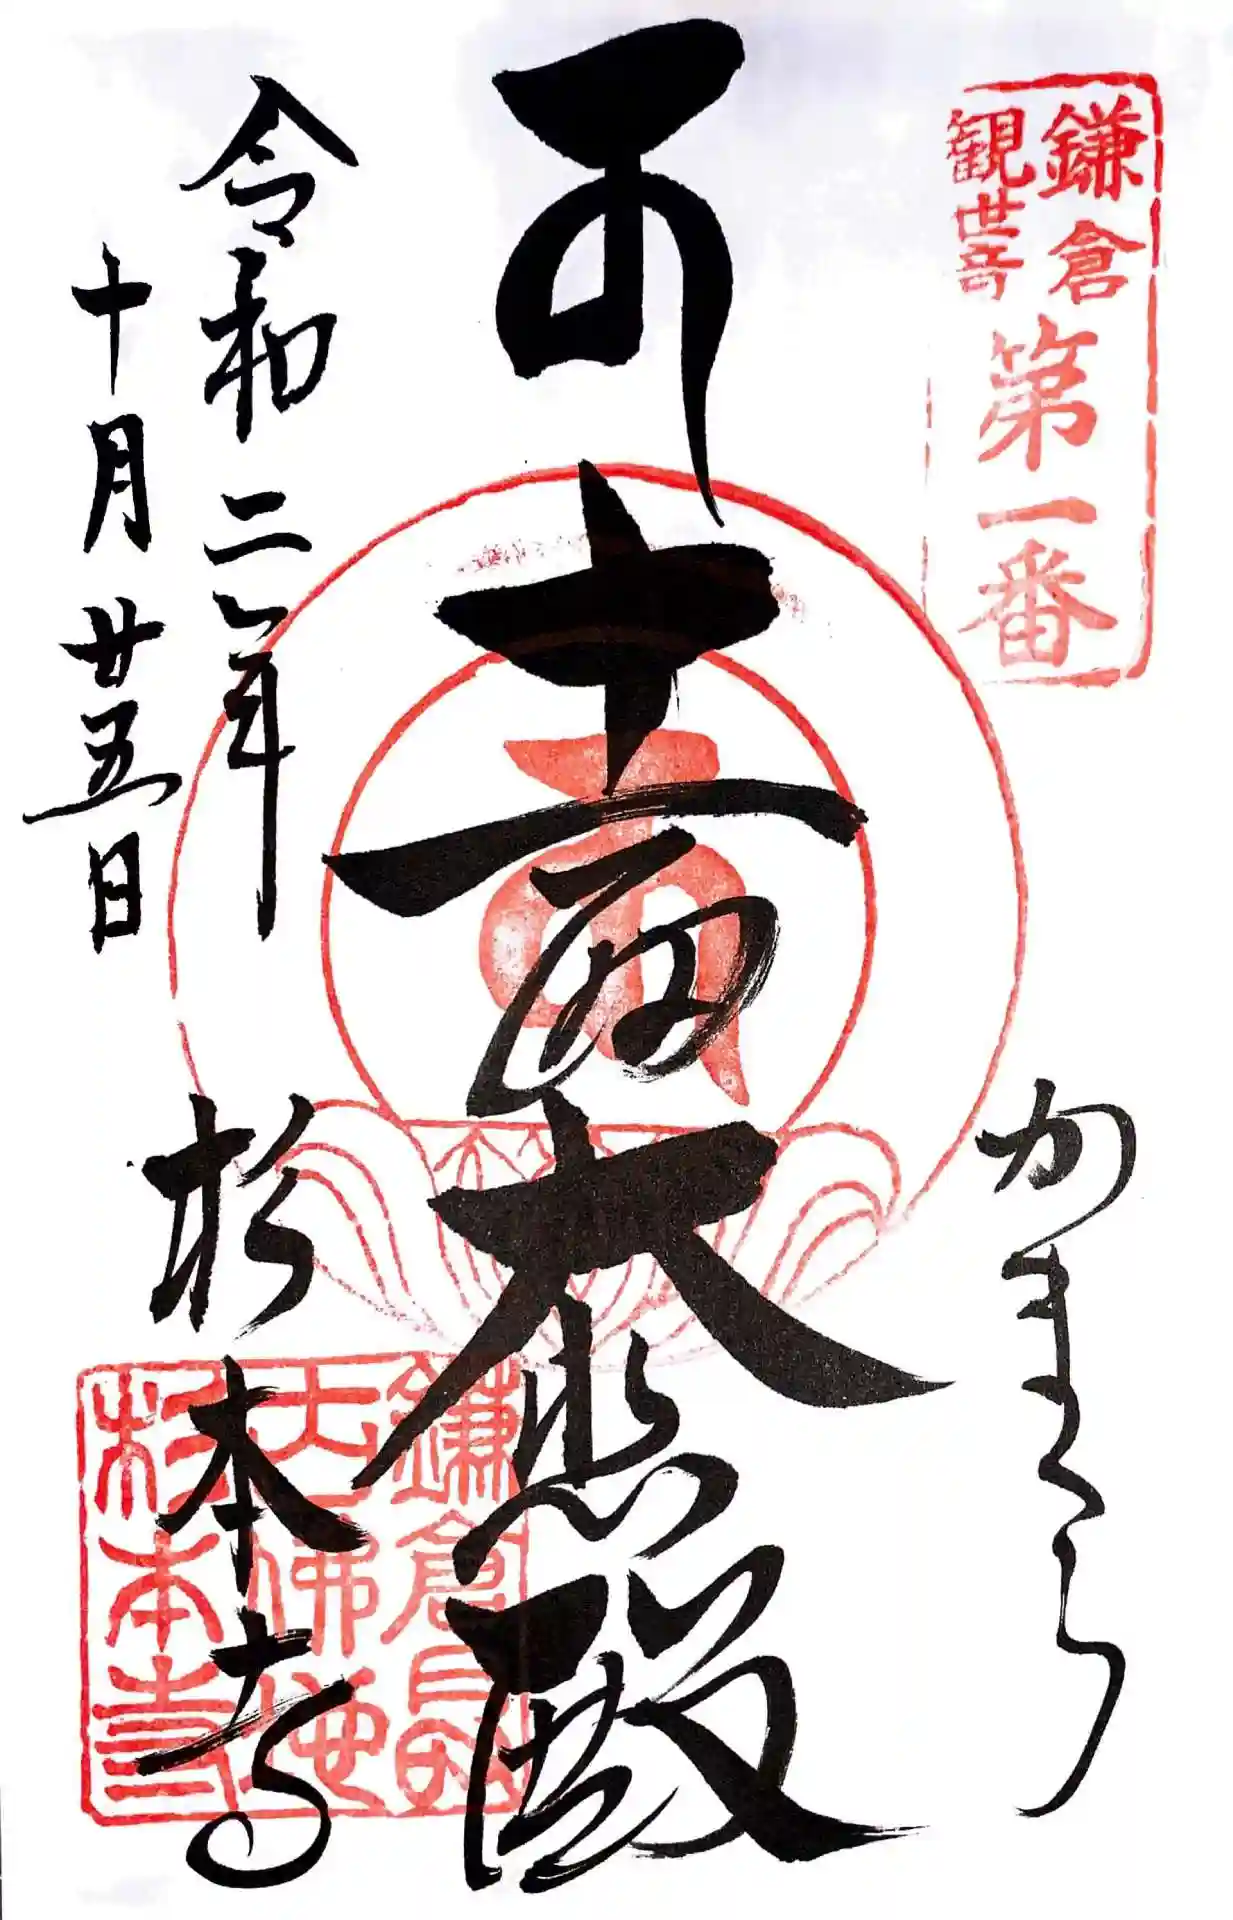 鎌倉
観世音
第一番
かまくら
十一面大悲殿
令和二年
十月廿五日
杉本寺
杉本寺